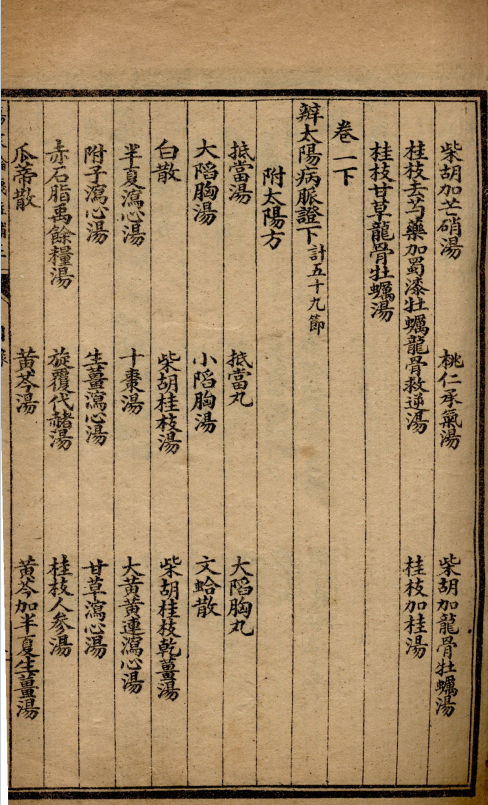 柴胡加芒硝湯 桃仁承氣湯 柴胡加龍骨牡蠣湯
桂枝去芍藥加蜀漆牡蠣龍骨救逆湯 桂枝加桂湯
桂枝甘草龍骨牡蠣湯
卷一下
辯太陽病脈證下計五十九節
附太陽方
抵當湯 抵當丸 大陷胸丸
大陷胸湯 小陷胸湯 文蛤散
白散 柴胡桂枝湯 柴胡桂枝乾薑湯
半夏瀉心湯 十棗湯 大黃黃連瀉心湯
附子瀉心湯 生薑瀉心湯 甘草瀉心湯
赤石脂禹餘糧湯 旋覆代赭湯 桂枝人參湯
瓜蒂散 黃芩湯 黃芩加半夏生薑湯